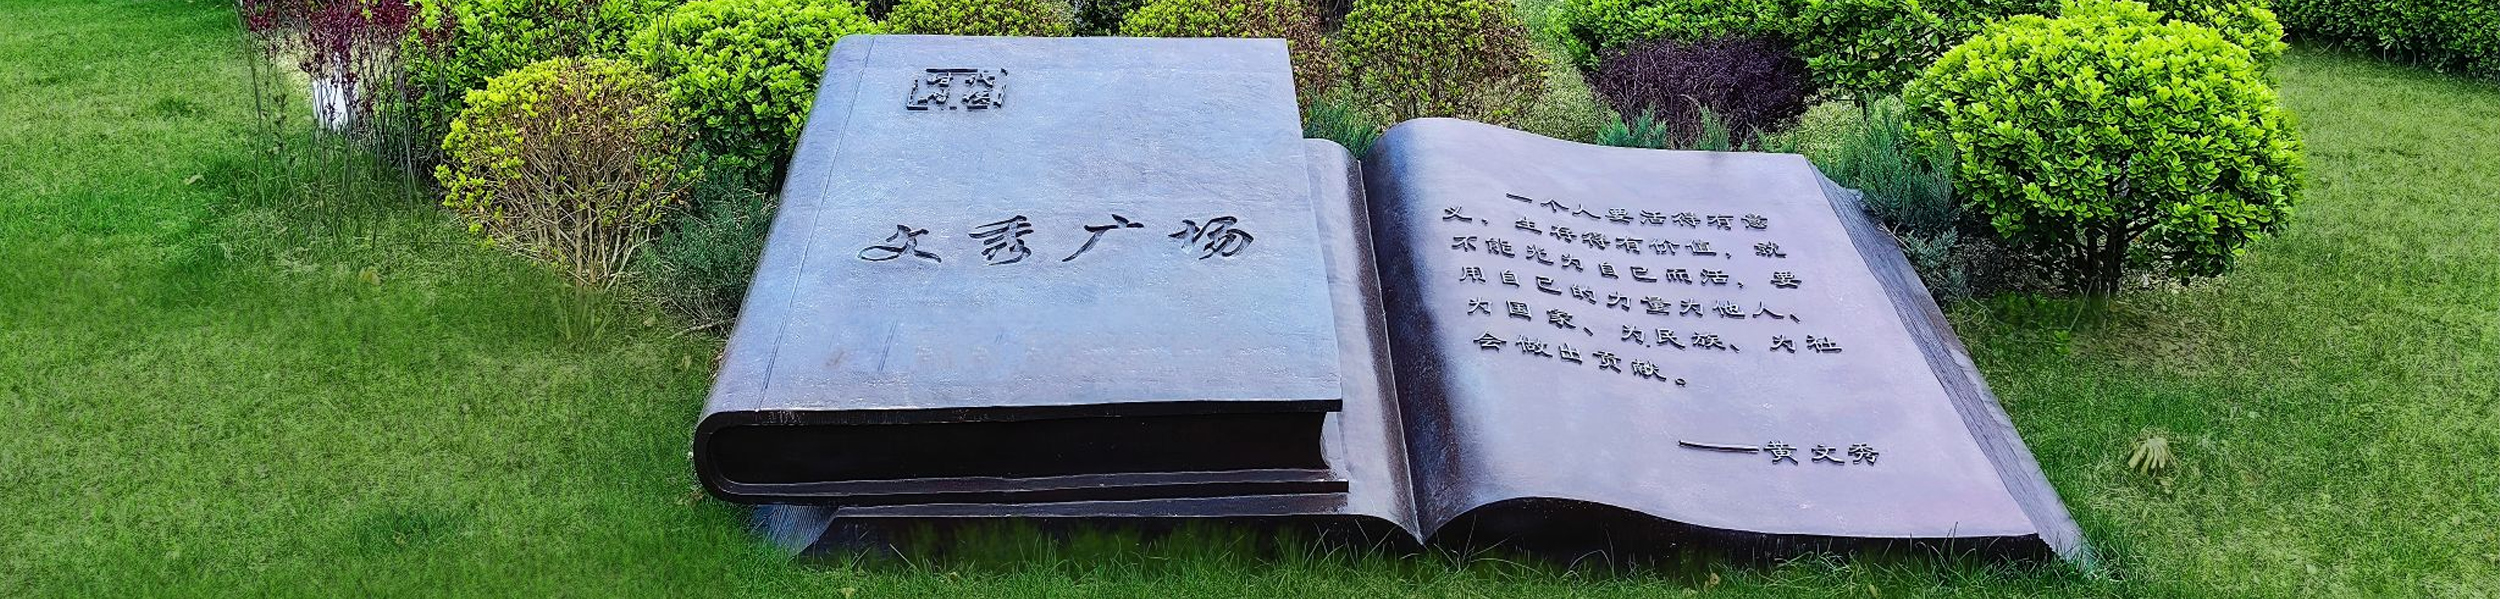 时代
楷模
文秀广场
一个人要活得有意
义，生存得有价值，就
不能光为自己而活，要
用自己的力量为他人、
为国家、为民族、为社
会做出贡献。
——黄文秀